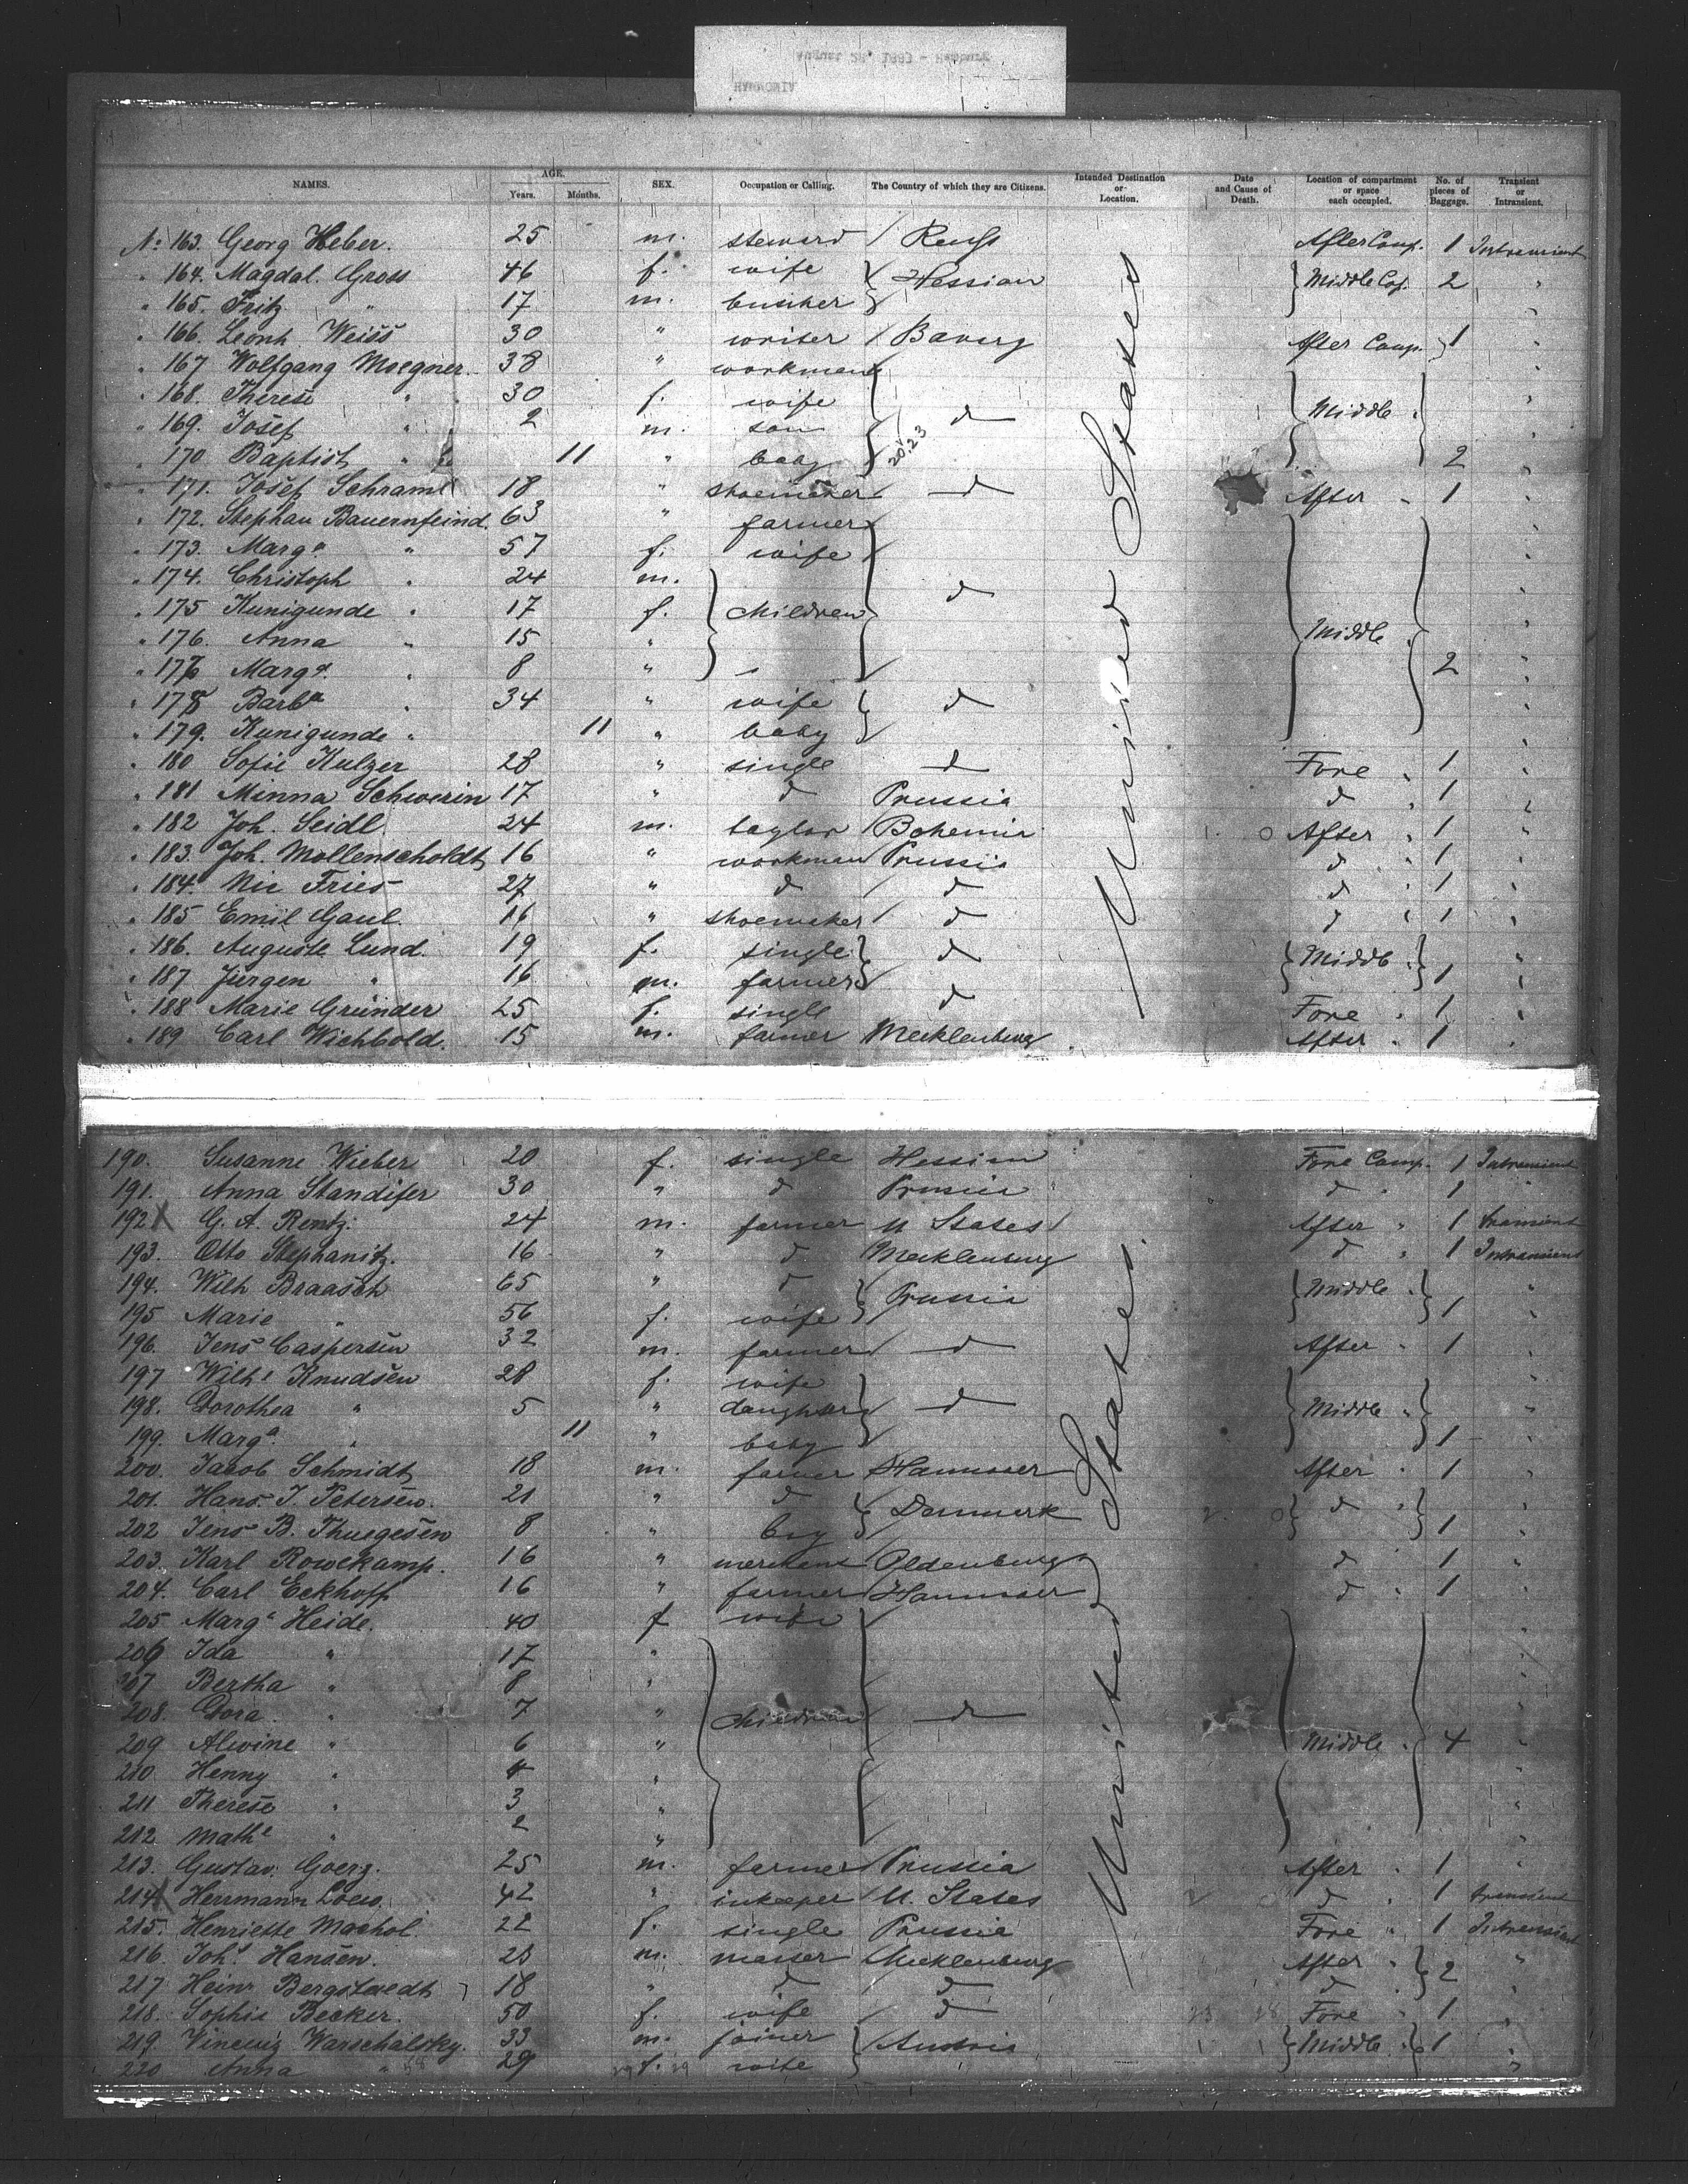 NAMES. AGE. Years. Months. SEX. Occupation or Calling. The Country of which they are Citizens. Intended Destination or Location. Date and Cause of Death. Location of compartment or space each occupied. No. of pieces of Baggage. Transient or Intransient.
No 163. Georg Heber. 25 m. steward Reuss After Comp. 1 Intransient
" 164. Magdal. Gross 46 f. wife Hessian Middle Cop. 2 "
" 165. Fritz " 17 m. "
" 166. Leonh. Weiss 30 " writer Bavarg After Comp. 1 "
" 167 Wolfgang Moegner. 38 " workman "
" 168. Therese " 30 f. wife d Middle " "
" 169. Josef " 2 m. son "
" 170 Baptist " 11 " baby 20.23 2 "
" 171. Josef Schraml 18 " shoemaker d After " 1 "
" 172. Stephan Bauernfeind. 63 " farmer "
" 173. Marga " 57 f. wife "
" 174. Christoph " 24 m. d "
" 175 Kunigunde " 17 f. children "
" 176. Anna " 15 " Middle "
" 177 Marga. " 8 " 2 "
" 178 Barba " 34 " wife d "
" 179. Kunigunde " 11 " baby "
" 180 Sofie Kulzer 28 " single d Fore " 1 "
" 181 Minna Schwerin 17 " d Prussia d " 1 "
" 182 Joh. Seidl 24 m. taylor Bohemia After " 1 "
" 183. Joh. Mollenscholdt 16 " workman Prussia d " 1 "
" 184. Nic Fries 27 " d d d " 1 "
" 185 Emil Gaul. 16 " shoemaker d " 1 "
" 186. Auguste Lund. 19 f. single d Middle " "
" 187 Jürgen " 16 m. farmer 1 "
" 188 Marie Gründer 25 f. single d Fore " 1 "
" 189 Carl Wichbold. 15 m. farmer Mecklenburg After " 1 "
United States
190. Susanne Wieber 20 f. single Hessian Fore Comp. 1 Intransient
191. Anna Standifer 30 " d Prussia d " 1 "
192 X G. A. Rentz. 24 m. farmer U States After " 1 transient
193. Otto Stephanitz. 16 " d Mecklenburg d " 1 Intransient
194. Wilh Braasch 65 " d Prussia Middle " "
195 Marie " 56 f. wife 1 "
196. Jens Caspersen 32 m. farmer d After " 1 "
197 Wilhe Knudsen 28 f. wife "
198. Dorothea " 5 " daughter d Middle " "
199. Marga. " 11 " baby 1 "
200. Jacob Schmidt 18 m. farmer Hannover After " 1 "
201. Hans. J. Petersen. 21 " d Denmark d "
202 Jens B. Thuegesen 8 " boy 1 "
203. Karl Rowekamp. 16 " merchant Oldenburg d 1 "
204. Carl Eckhoff 16 " farmer Hannover d " 1
205. Marga Heide. 40 f wife "
206 Ida " 17 " "
207 Bertha " 8 " "
208. Dora " 7 " children d "
209 Alwine " 6 " Middle " 4 "
210. Henny " 4 " "
211 Therese " 3 " "
212. Mathe " 2 " "
213. Gustav. Goerz. 25 m. farmer Prussia After " 1 "
214 X Herrmann Loew. 42 " inkeeper U. States d " 1 transient
215. Henriette Machol 22 f. single Prussia Fore " 1 Intransient
216. Johs. Hansen. 23 m. Mecklenburg After " "
217 Heinr Bergstaedt 18 " d d d " 2
218. Sophie Becker. 50 f. wife d Fore " 1 "
219. Warschalsky. 33 m. joiner Austria Middle 1 "
220 Anna " 29 f. wife "
United States